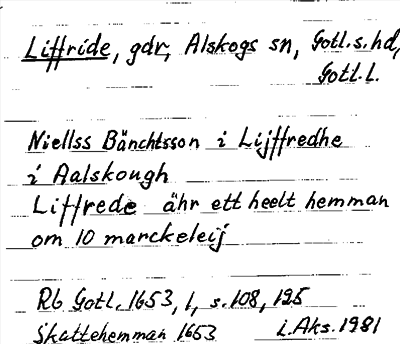 Liffride, gdr, Alskogs sn, Gotl.s.hd,
Gotl.l.
Niellss Bänchtsson i Lijffredhe
i Aalskough
Liffrede ähr ett heelt hemman
om 10 marckeleij
Rb Gotl. 1653, 1, s. 108, 195
Skattehemman 1653 i.Aks. 1981